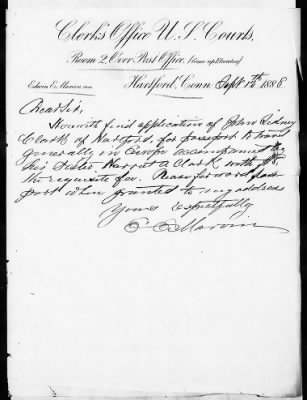 Clerk's Office U.S. Courts,
Room 2, Over Post Office,
Edwin E. Marvin
Hartford, Conn Sept 12th 1888
Dear Sir,
Herewith find application of John Sidney
Clark of Hartford, for passport to travel
generally in Europe accompanied by
his Sister, Harriet A Clark, with
the requisite fee. Please forward pass-
port when granted to my address
Yours Respectfully
E E Marvin